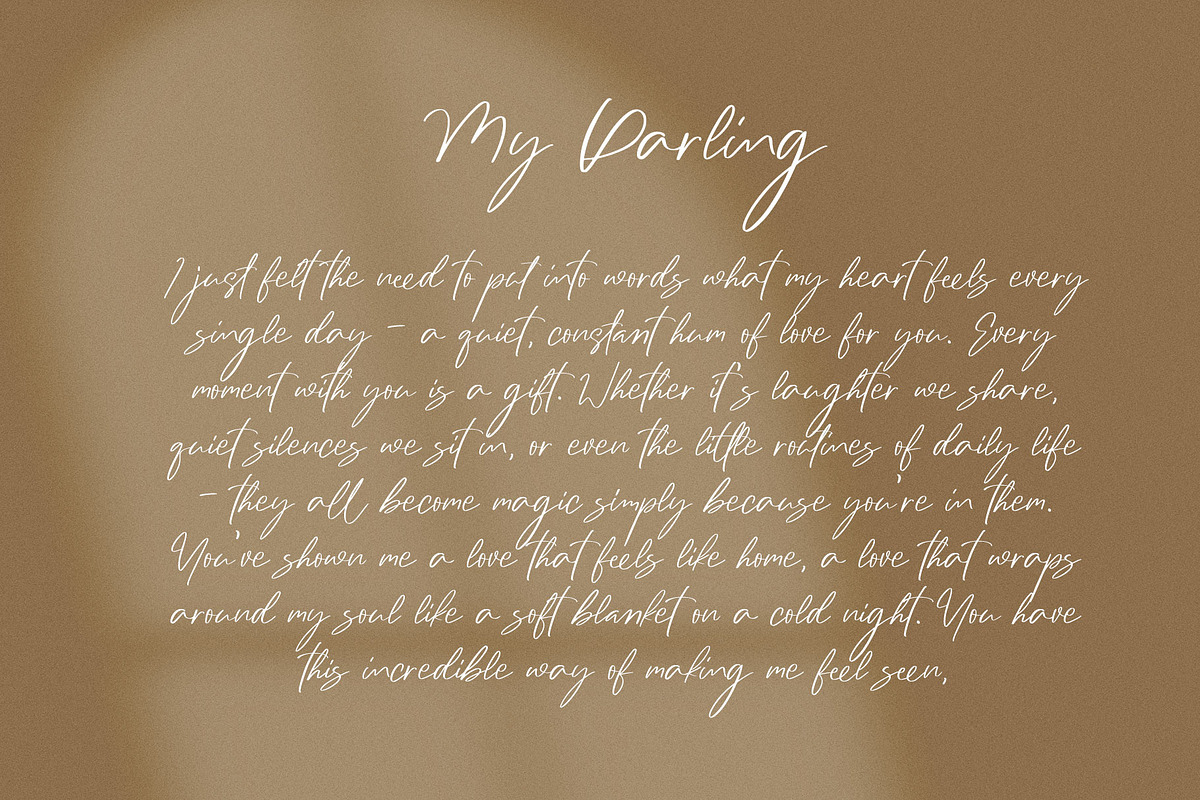 My Darling
I just felt the need to put into words what my heart feels every
single day - a quiet, constant hum of love for you. Every
moment with you is a gift. Whether it's laughter we share,
quiet silences we sit in, or even the little routines of daily life
- they all become magic simply because you're in them.
You've shown me a love that feels like home, a love that wraps
around my soul like a soft blanket on a cold night. You have
this incredible way of making me feel seen,